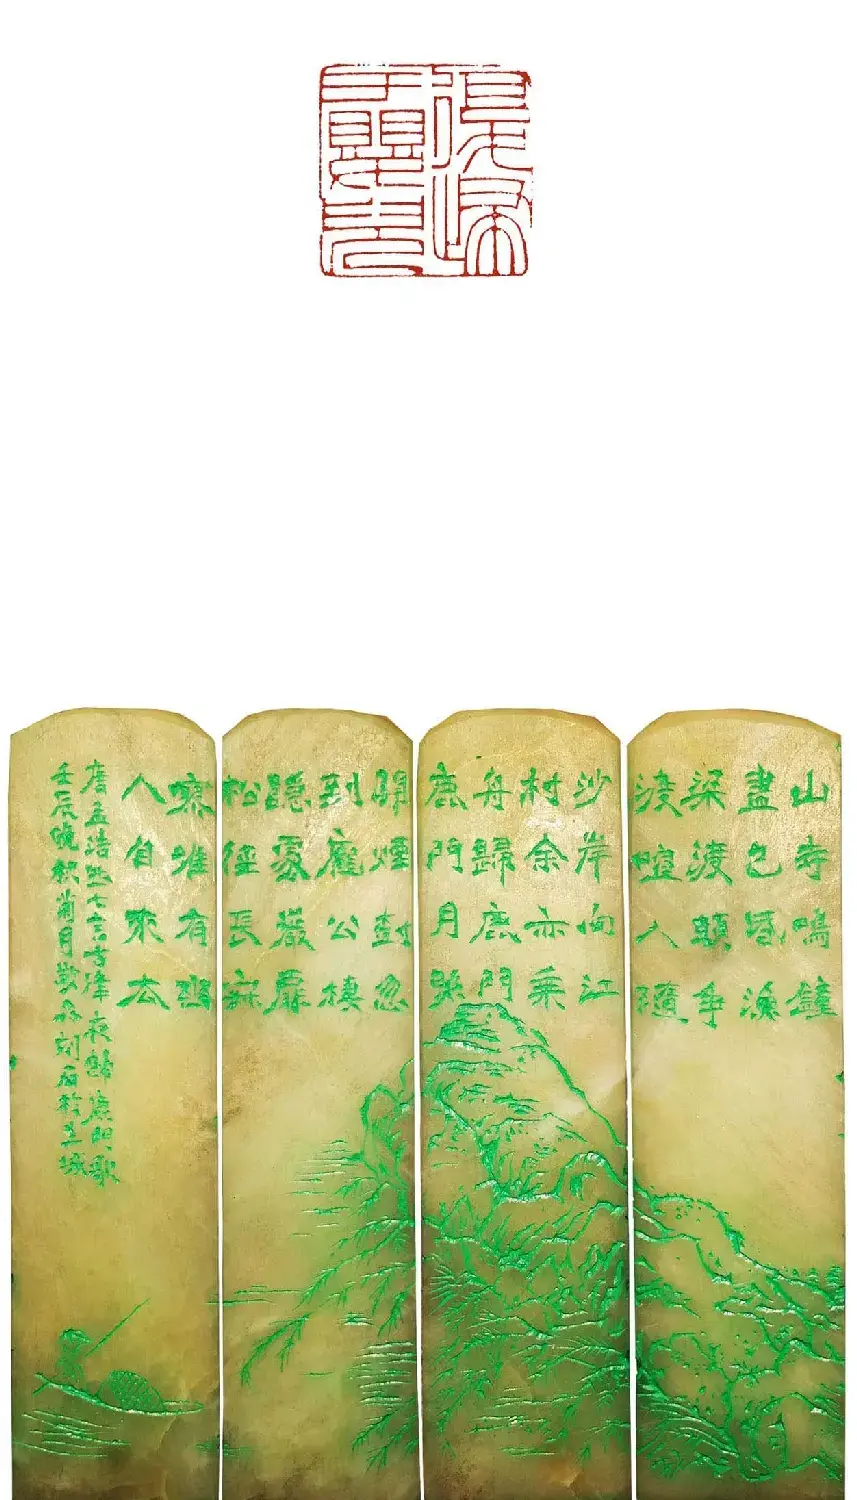 復歸
于嬰兒
山寺鳴鐘
晝已昏漁
梁渡頭爭
渡喧人隨
沙岸向江
村余亦乘
舟歸鹿門
鹿門月照
開煙樹忽
到龐公棲
隱處巖扉
松徑長寂
寥惟有幽
人自來去
唐孟浩然七言古律夜歸鹿門歌
壬辰晚秋菊月刻石於